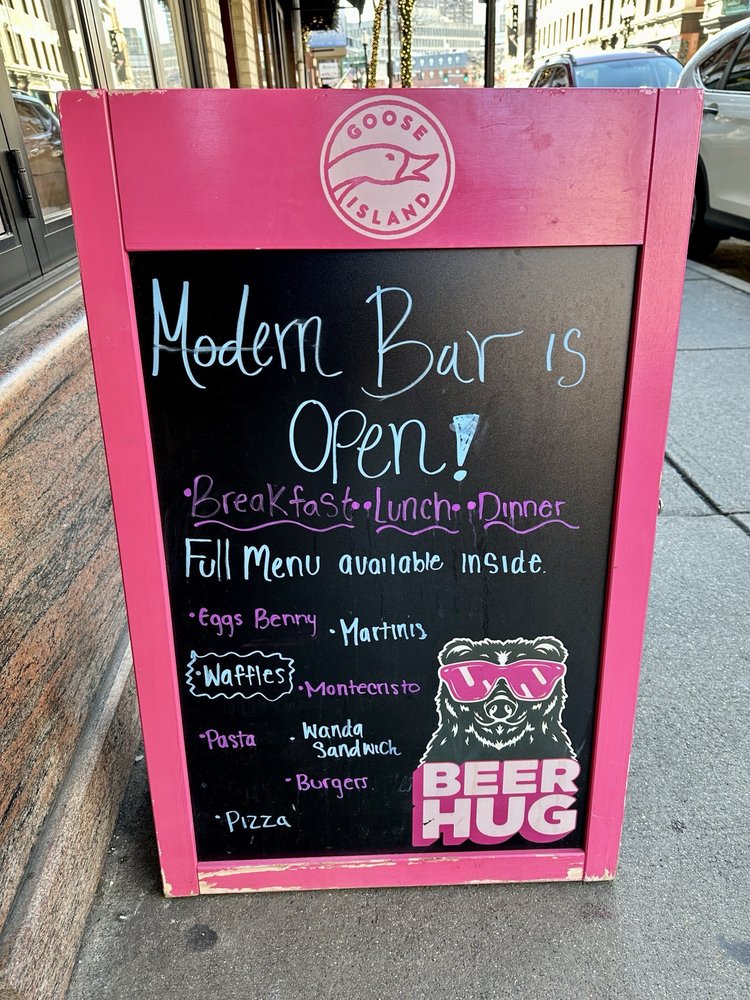 GOOSE
ISLAND
Modern Bar is
Open!
·Breakfast··Lunch··Dinner
Full Menu available inside.
·Eggs Benny
·Martinis
·Waffles
·Montecristo
·Pasta
·Wanda
Sandwich
·Burgers
·Pizza
BEER
HUG